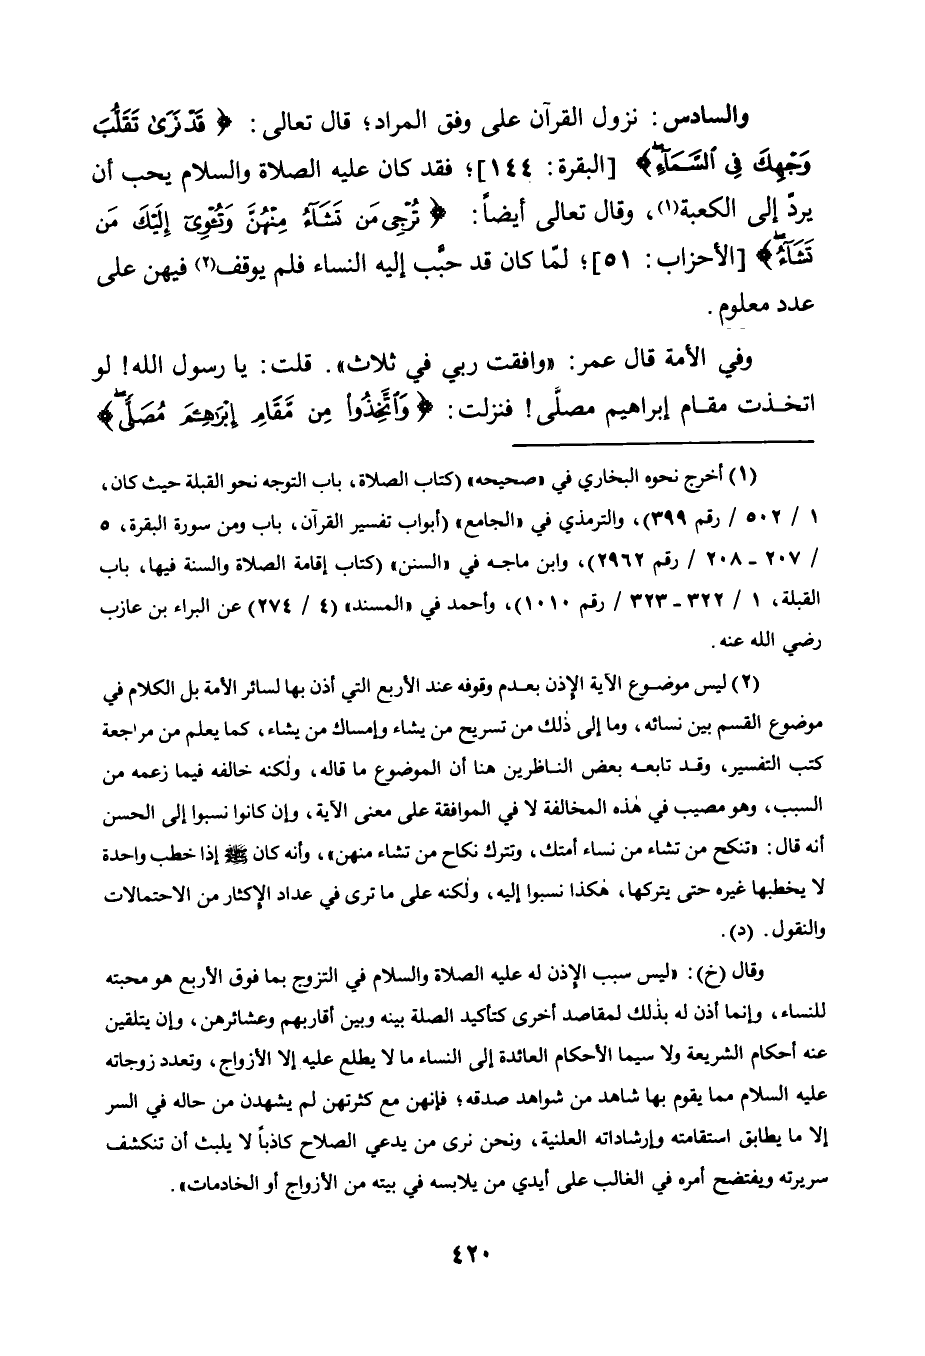 والسادس: نزول القرآن على وفق المراد؛ قال تعالى: ﴿ قَدْ نَرَىٰ تَقَلُّبَ
وَجْهِكَ فِى ٱلسَّمَآءِۖ ﴾ [البقرة: ١٤٤]؛ فقد كان عليه الصلاة والسلام يحب أن
يردّ إلى الكعبة(١)، وقال تعالى أيضاً: ﴿ تُرْجِى مَن تَشَآءُ مِنْهُنَّ وَتُـْٔوِىٓ إِلَيْكَ مَن
تَشَآءُۖ ﴾ [الأحزاب: ٥١]؛ لمّا كان قد حبَّب إليه النساء فلم يوقف(٢) فيهن على
عدد معلوم.
وفي الأمة قال عمر: «وافقت ربي في ثلاث». قلت: يا رسول الله! لو
اتخذت مقام إبراهيم مصلًّى! فنزلت: ﴿ وَٱتَّخِذُوا۟ مِن مَّقَامِ إِبْرَٰهِـۧمَ مُصَلًّىۖ ﴾
(١) أخرج نحوه البخاري في «صحيحه» (كتاب الصلاة، باب التوجه نحو القبلة حيث كان،
١ / ٥٠٢ / رقم ٣٩٩)، والترمذي في «الجامع» (أبواب تفسير القرآن، باب ومن سورة البقرة، ٥
/ ٢٠٧ - ٢٠٨ / رقم ٢٩٦٢)، وابن ماجه في «السنن» (كتاب إقامة الصلاة والسنة فيها، باب
القبلة، ١ / ٣٢٢ - ٣٢٣ / رقم ١٠١٠)، وأحمد في «المسند» (٤ / ٢٧٤) عن البراء بن عازب
رضي الله عنه.
(٢) ليس موضوع الآية الإذن بعدم وقوفه عند الأربع التي أذن بها لسائر الأمة بل الكلام في
موضوع القسم بين نسائه، وما إلى ذٰلك من تسريح من يشاء وإمساك من يشاء، كما يعلم من مراجعة
كتب التفسير، وقد تابعه بعض الناظرين هنا أن الموضوع ما قاله، ولٰكنه خالفه فيما زعمه من
السبب، وهو مصيب في هٰذه المخالفة لا في الموافقة على معنى الآية، وإن كانوا نسبوا إلى الحسن
أنه قال: «تنكح من تشاء من نساء أمتك، وتترك نكاح من تشاء منهن»، وأنه كان ﷺ إذا خطب واحدة
لا يخطبها غيره حتى يتركها، هٰكذا نسبوا إليه، ولٰكنه على ما ترى في عداد الإكثار من الاحتمالات
والنقول. (د).
وقال (خ): «ليس سبب الإذن له عليه الصلاة والسلام في التزوج بما فوق الأربع هو محبته
للنساء، وإنما أذن له بذٰلك لمقاصد أخرى كتأكيد الصلة بينه وبين أقاربهم وعشائرهن، وإن يتلقين
عنه أحكام الشريعة ولا سيما الأحكام العائدة إلى النساء ما لا يطلع عليه إلا الأزواج، وتعدد زوجاته
عليه السلام مما يقوم بها شاهد من شواهد صدقه؛ فإنهن مع كثرتهن لم يشهدن من حاله في السر
إلا ما يطابق استقامته وإرشاداته العلنية، ونحن نرى من يدعي الصلاح كاذباً لا يلبث أن تنكشف
سريرته ويفتضح أمره في الغالب على أيدي من يلابسه في بيته من الأزواج أو الخادمات».
٤٢٠